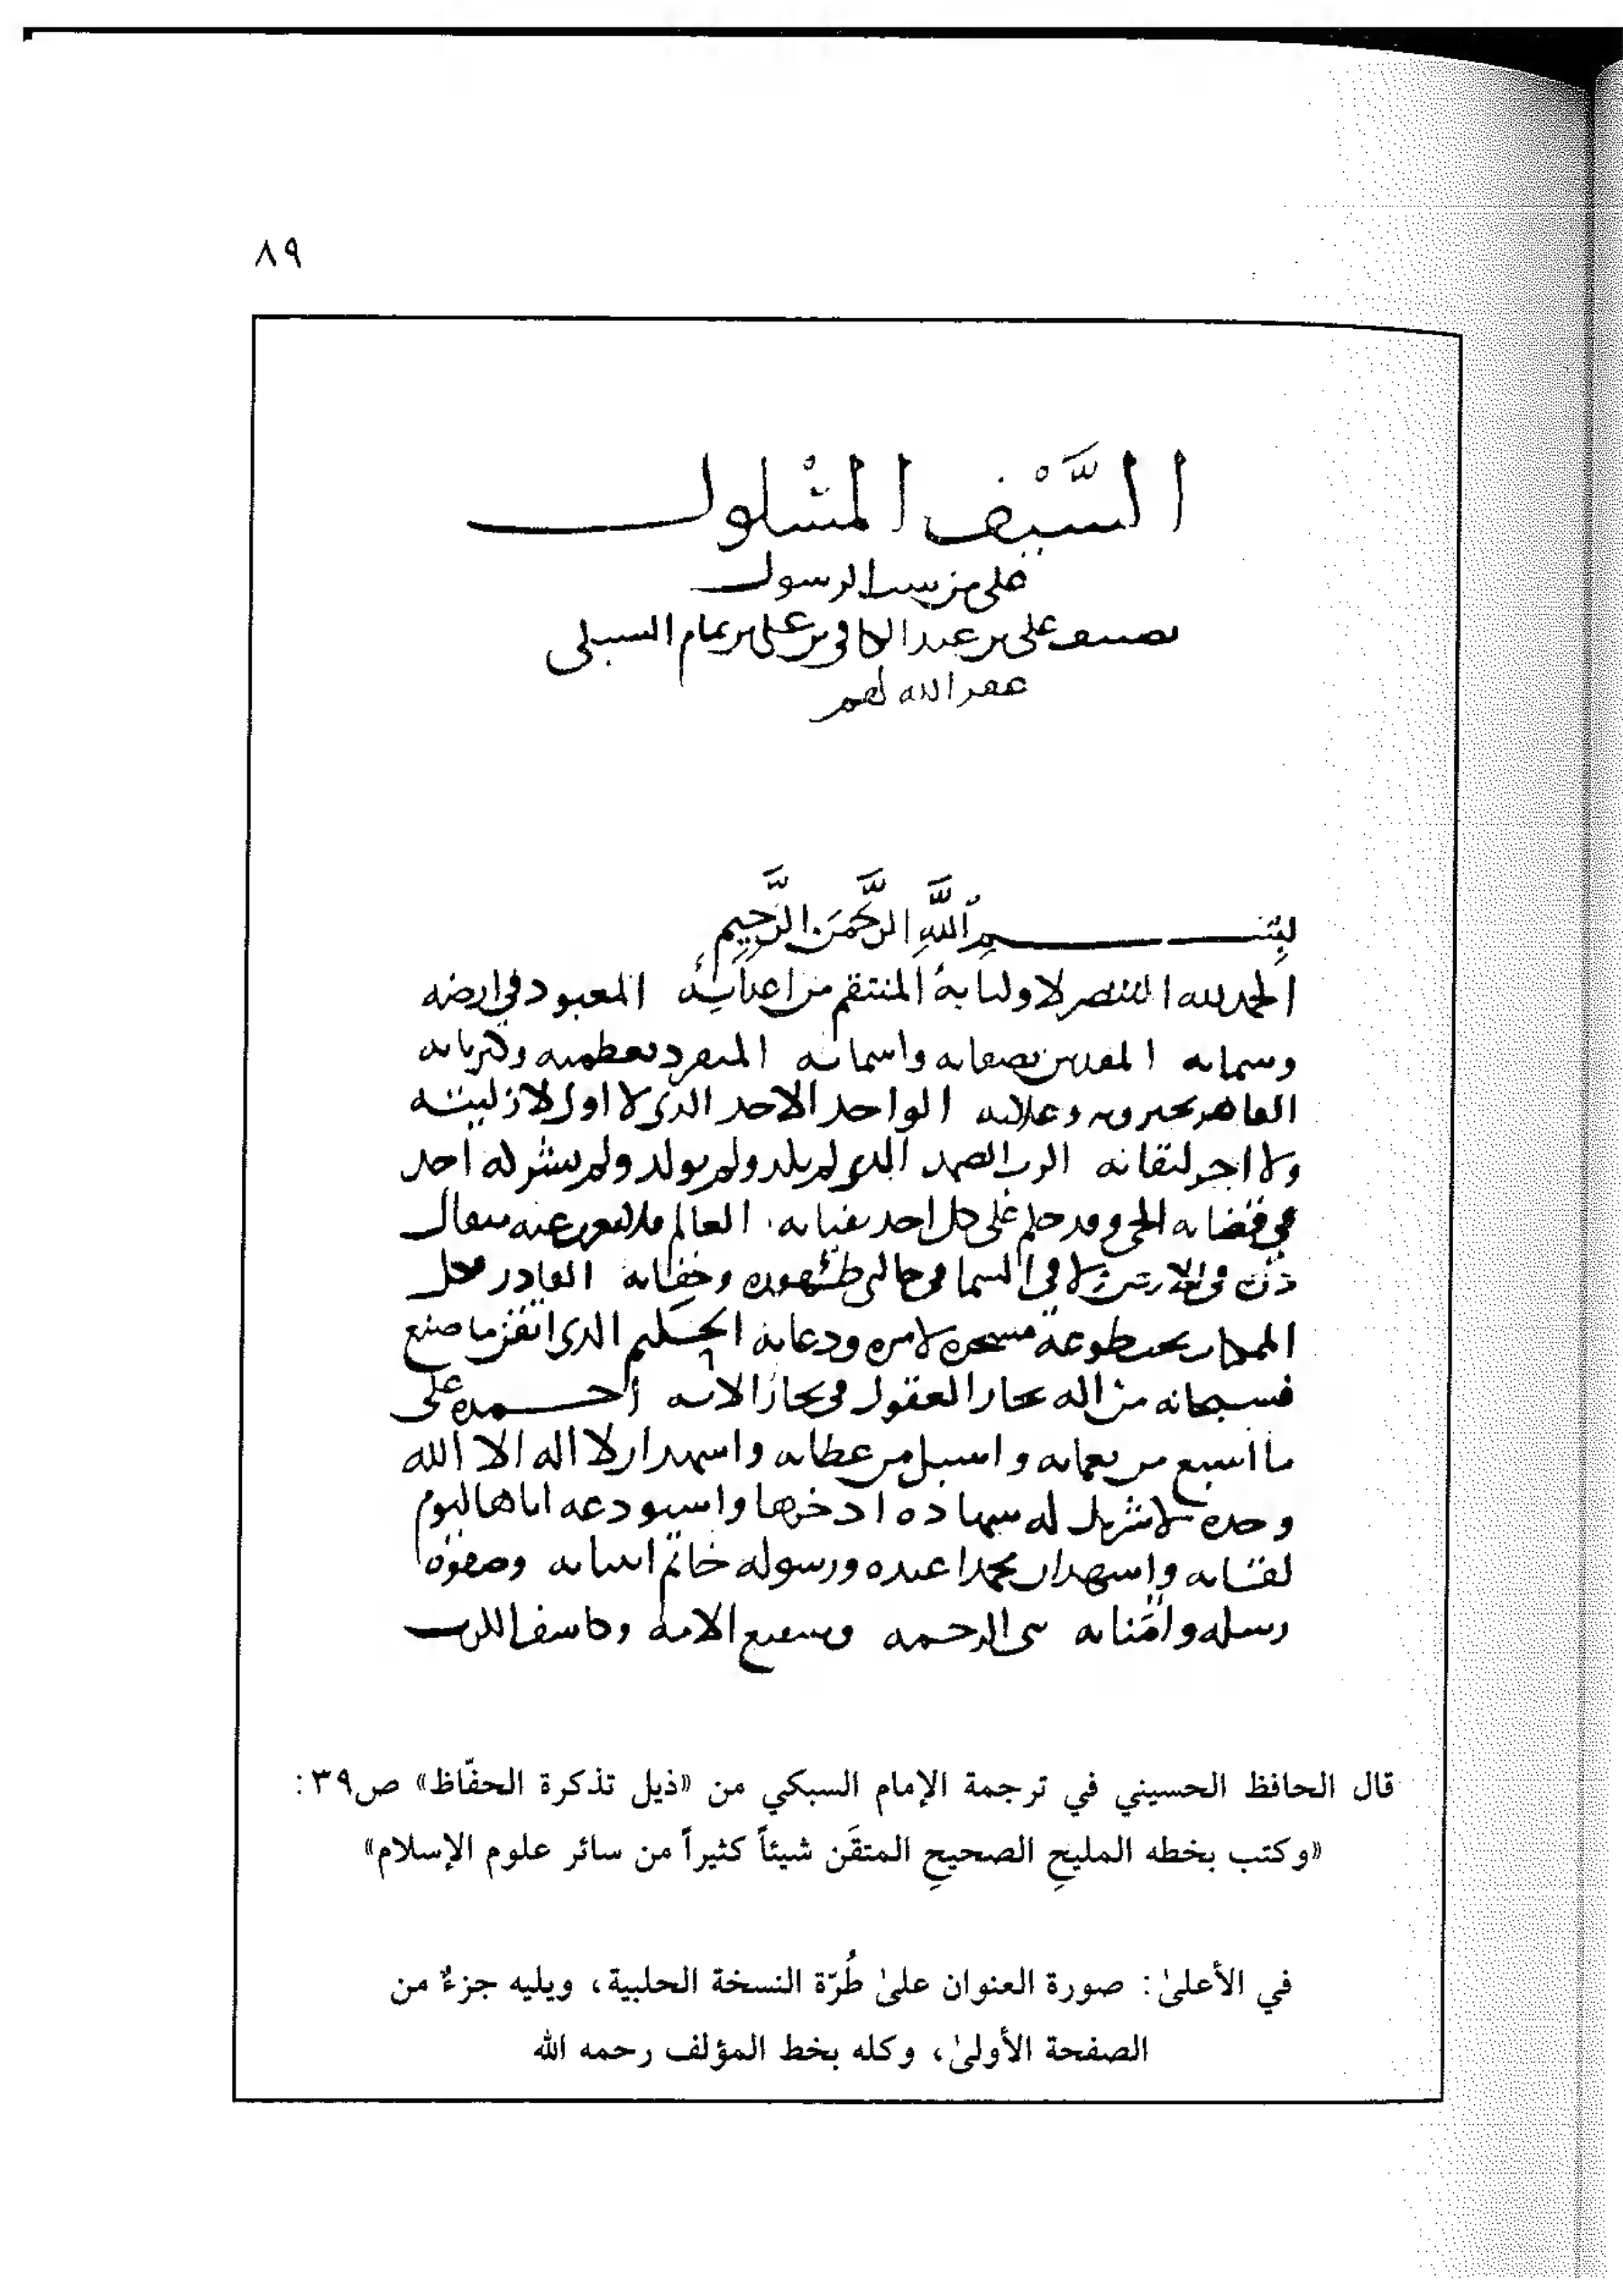 ٨٩
السَّيْف المسْلول
على من سب الرسول
تصنيف علي بن عبد الكافي بن علي بن تمام السبكي
غفر الله لهم
بِسْمِ اللَّهِ الرَّحْمَنِ الرَّحِيمِ
الحمد لله المنتصر لاوليائه المنتقم من اعدائه المعبود في ارضه
وسمائه المقدس بصفاته واسمائه المنفرد بعظمته وكبريائه
القاهر بجبروته وعلائه الواحد الاحد الذي لا اول لازليته
ولا اخر لبقائه الرب الصمد الذي لم يلد ولم يولد ولم يشركه احد
في قضائه الحي وقد حكم على كل احد بفنائه العالم فلا يعزب عنه مثقال
في الارض ولا في السما في حالتي ظهوره وخفائه القادر فكل
مسخره لامره ودعائه الحكيم الذي اتقن ما صنع
فسبحانه من اله تحار العقول في بحار الائه احمده على
ما اسبغ من نعمائه واسبل من عطائه واشهد ان لا اله الا الله
وحده لا شريك له شهادة ادخرها واستودعه اياها ليوم
لقائه واشهد ان محمدا عبده ورسوله خاتم انبيائه وصفوة
رسله وامنائه نبي الرحمه وشفيع الامه وكاشف الكرب
قال الحافظ الحسيني في ترجمة الإمام السبكي من «ذيل تذكرة الحفّاظ» ص٣٩:
«وكتب بخطه المليحِ الصحيحِ المتقَن شيئاً كثيراً من سائر علوم الإسلام»
في الأعلىٰ: صورة العنوان علىٰ طُرّة النسخة الحلبية، ويليه جزءٌ من
الصفحة الأولىٰ، وكله بخط المؤلف رحمه الله